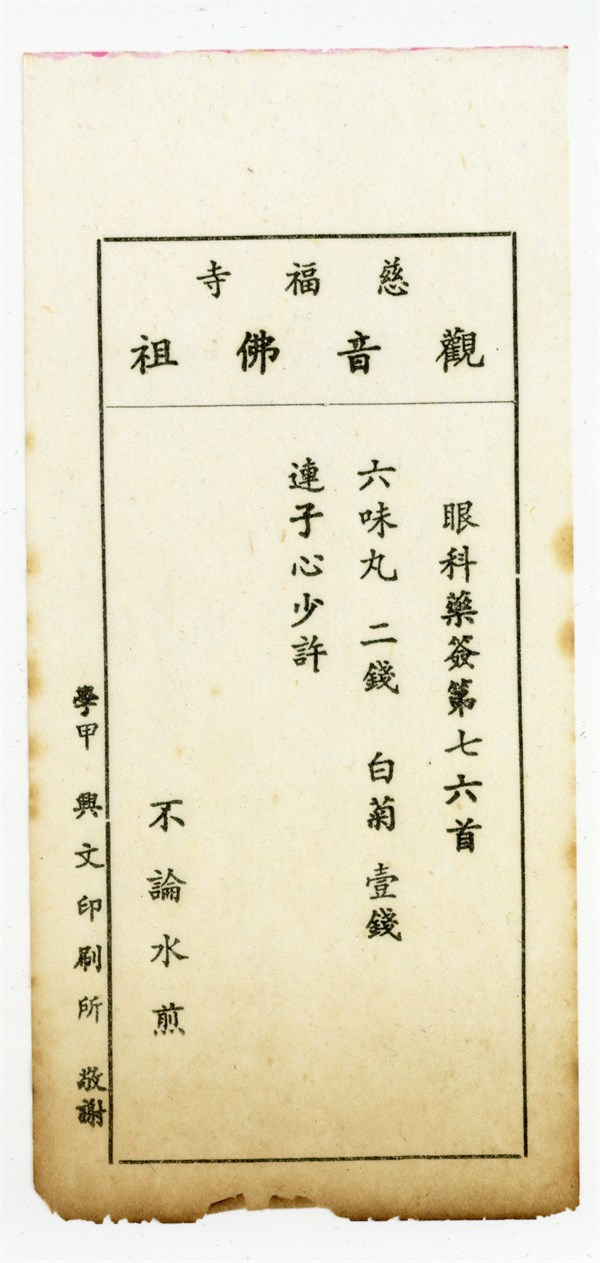 慈福寺
觀音佛祖
眼科藥簽第七六首
六味丸 二錢 白菊 壹錢
連子心少許
不論水煎
學甲 興文印刷所 敬謝